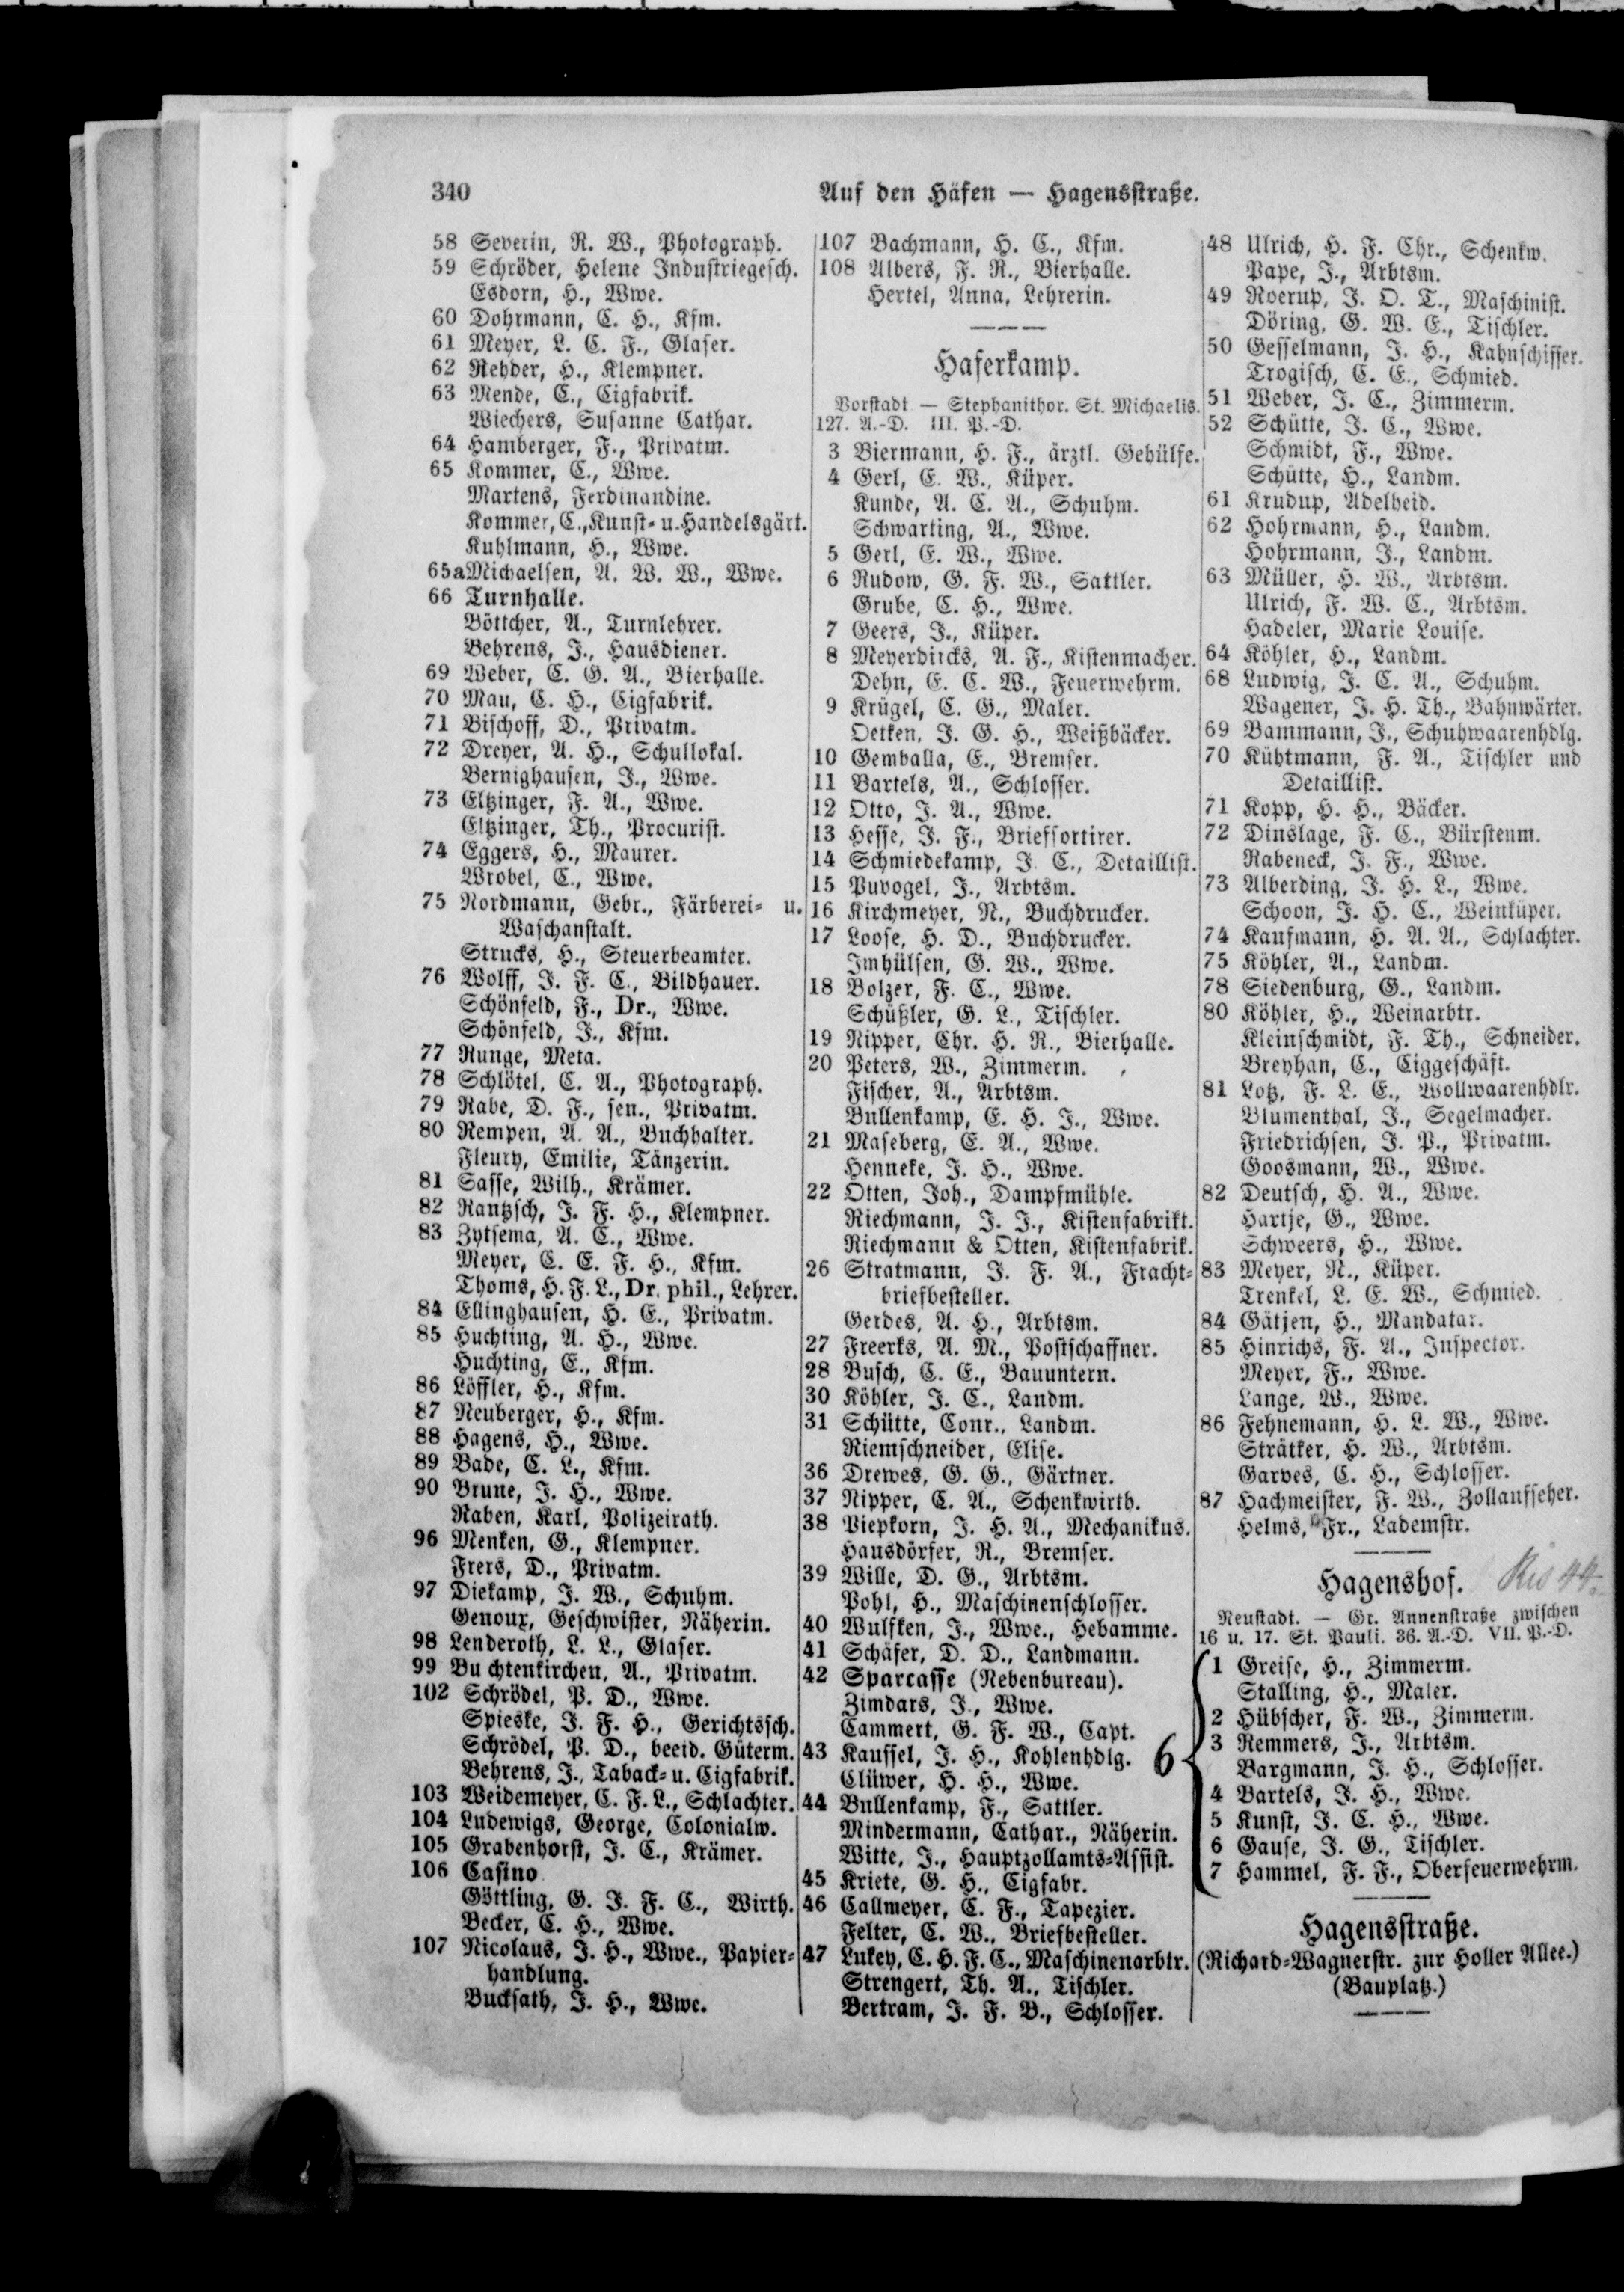 340
Auf den Häfen — Hagensstraße.
58 Severin, R. W., Photograph.
59 Schröder, Helene Industriegesch.
Esdorn, H., Wwe.
60 Dohrmann, C. H., Kfm.
61 Meyer, L. C. F., Glaser.
62 Rehder, H., Klempner.
63 Mende, C., Cigfabrik.
Wiechers, Susanne Cathar.
64 Hamberger, F., Privatm.
65 Kommer, C., Wwe.
Martens, Ferdinandine.
Kommer, C., Kunst- u. Handelsgärt.
Kuhlmann, H., Wwe.
65a Michaelsen, A. W. W., Wwe.
66 Turnhalle.
Böttcher, A., Turnlehrer.
Behrens, J., Hausdiener.
69 Weber, C. G. A., Bierhalle.
70 Mau, C. H., Cigfabrik.
71 Bischoff, D., Privatm.
72 Dreyer, A. H., Schullokal.
Bernighausen, J., Wwe.
73 Eltzinger, F. A., Wwe.
Eltzinger, Th., Procurist.
74 Eggers, H., Maurer.
Wrobel, C., Wwe.
75 Nordmann, Gebr., Färberei- u.
Waschanstalt.
Strucks, H., Steuerbeamter.
76 Wolff, J. F. C., Bildhauer.
Schönfeld, F., Dr., Wwe.
Schönfeld, J., Kfm.
77 Runge, Meta.
78 Schlötel, C. A., Photograph.
79 Rabe, D. F., sen., Privatm.
80 Rempen, A. A., Buchhalter.
Fleury, Emilie, Tänzerin.
81 Sasse, Wilh., Krämer.
82 Rantzsch, J. F. H., Klempner.
83 Zytsema, A. C., Wwe.
Meyer, C. E. F. H., Kfm.
Thoms, H. F. L., Dr. phil., Lehrer.
84 Ellinghausen, H. E., Privatm.
85 Huchting, A. H., Wwe.
Huchting, E., Kfm.
86 Löffler, H., Kfm.
87 Neuberger, H., Kfm.
88 Hagens, H., Wwe.
89 Bade, C. L., Kfm.
90 Brune, J. H., Wwe.
Raben, Karl, Polizeirath.
96 Menken, G., Klempner.
Frers, D., Privatm.
97 Diekamp, J. W., Schuhm.
Genoux, Geschwister, Näherin.
98 Lenderoth, L. L., Glaser.
99 Buchtenkirchen, A., Privatm.
102 Schrödel, P. D., Wwe.
Spieske, J. F. H., Gerichtssch.
Schrödel, P. D., beeid. Güterm.
Behrens, J., Taback- u. Cigfabrik.
103 Weidemeyer, C. F. L., Schlachter.
104 Ludewigs, George, Colonialw.
105 Grabenhorst, J. C., Krämer.
106 Casino
Göttling, G. J. F. C., Wirth.
Becker, C. H., Wwe.
107 Nicolaus, J. H., Wwe., Papier-
handlung.
Bucksath, J. H., Wwe.
107 Bachmann, H. C., Kfm.
108 Albers, F. R., Bierhalle.
Hertel, Anna, Lehrerin.
Haferkamp.
Vorstadt — Stephanithor. St. Michaelis.
127. A.-D. III. P.-D.
3 Biermann, H. F., ärztl. Gehülfe.
4 Gerl, E. W., Küper.
Kunde, A. C. A., Schuhm.
Schwarting, A., Wwe.
5 Gerl, E. W., Wwe.
6 Rudow, G. F. W., Sattler.
Grube, C. H., Wwe.
7 Geers, J., Küper.
8 Meyerdircks, A. F., Kistenmacher.
Dehn, E. C. W., Feuerwehrm.
9 Krügel, C. G., Maler.
Oetken, J. G. H., Weißbäcker.
10 Gemballa, E., Bremser.
11 Bartels, A., Schlosser.
12 Otto, J. A., Wwe.
13 Hesse, J. F., Briefsortirer.
14 Schmiedekamp, J. C., Detaillist.
15 Puvogel, J., Arbtsm.
16 Kirchmeyer, N., Buchdrucker.
17 Loose, H. D., Buchdrucker.
Imhülsen, G. W., Wwe.
18 Bolzer, F. C., Wwe.
Schüßler, G. L., Tischler.
19 Nipper, Chr. H. R., Bierhalle.
20 Peters, W., Zimmerm.
Fischer, A., Arbtsm.
Bullenkamp, E. H. J., Wwe.
21 Maseberg, E. A., Wwe.
Henneke, J. H., Wwe.
22 Otten, Joh., Dampfmühle.
Riechmann, J. J., Kistenfabrikt.
Riechmann & Otten, Kistenfabrik.
26 Stratmann, J. F. A., Fracht-
briefbesteller.
Gerdes, A. H., Arbtsm.
27 Freerks, A. M., Postschaffner.
28 Busch, C. E., Bauuntern.
30 Köhler, J. C., Landm.
31 Schütte, Conr., Landm.
Riemschneider, Elise.
36 Drewes, G. G., Gärtner.
37 Nipper, C. A., Schenkwirth.
38 Piepkorn, J. H. A., Mechanikus.
Hausdörfer, R., Bremser.
39 Wille, D. G., Arbtsm.
Pohl, H., Maschinenschlosser.
40 Wulfken, J., Wwe., Hebamme.
41 Schäfer, D. D., Landmann.
42 Sparcasse (Nebenbureau).
Zimdars, J., Wwe.
Cammert, G. F. W., Capt.
43 Kaussel, J. H., Kohlenhdlg.
Clüwer, H. H., Wwe.
44 Bullenkamp, F., Sattler.
Mindermann, Cathar., Näherin.
Witte, J., Hauptzollamts-Assist.
45 Kriete, G. H., Cigfabr.
46 Callmeyer, C. F., Tapezier.
Felter, C. W., Briefbesteller.
47 Lukey, C. H. F. C., Maschinenarbtr.
Strengert, Th. A., Tischler.
Bertram, J. F. B., Schlosser.
48 Ulrich, H. F. Chr., Schenkw.
Pape, J., Arbtsm.
49 Roerup, J. O. T., Maschinist.
Döring, G. W. E., Tischler.
50 Gesselmann, J. H., Kahnschiffer.
Trogisch, C. E., Schmied.
51 Weber, J. C., Zimmerm.
52 Schütte, J. C., Wwe.
Schmidt, F., Wwe.
Schütte, H., Landm.
61 Krudup, Adelheid.
62 Hohrmann, H., Landm.
Hohrmann, J., Landm.
63 Müller, H. W., Arbtsm.
Ulrich, F. W. C., Arbtsm.
Hadeler, Marie Louise.
64 Köhler, H., Landm.
68 Ludwig, J. C. A., Schuhm.
Wagener, J. H. Th., Bahnwärter.
69 Bammann, J., Schuhwaarenhdlg.
70 Kühtmann, F. A., Tischler und
Detaillist.
71 Kopp, H. H., Bäcker.
72 Dinslage, F. C., Bürstenm.
Rabeneck, J. F., Wwe.
73 Alberding, J. H. L., Wwe.
Schoon, J. H. C., Weinküper.
74 Kaufmann, H. A. A., Schlachter.
75 Köhler, A., Landm.
78 Siedenburg, G., Landm.
80 Köhler, H., Weinarbtr.
Kleinschmidt, F. Th., Schneider.
Breyhan, C., Ciggeschäft.
81 Lotz, F. L. E., Wollwaarenhdlr.
Blumenthal, J., Segelmacher.
Friedrichsen, J. P., Privatm.
Goosmann, W., Wwe.
82 Deutsch, H. A., Wwe.
Hartje, G., Wwe.
Schweers, H., Wwe.
83 Meyer, N., Küper.
Trenkel, L. E. W., Schmied.
84 Gätjen, H., Mandatar.
85 Hinrichs, F. A., Inspector.
Meyer, F., Wwe.
Lange, W., Wwe.
86 Fehnemann, H. L. W., Wwe.
Strätker, H. W., Arbtsm.
Garves, C. H., Schlosser.
87 Hachmeister, F. W., Zollaufseher.
Helms, Fr., Lademstr.
Hagenshof.
Neustadt. — Gr. Annenstraße zwischen
16 u. 17. St. Pauli. 36. A.-D. VII. P.-D.
1 Greise, H., Zimmerm.
Stalling, H., Maler.
2 Hübscher, F. W., Zimmerm.
3 Remmers, J., Arbtsm.
6
Bargmann, J. H., Schlosser.
4 Bartels, J. H., Wwe.
5 Kunst, J. C. H., Wwe.
6 Gause, J. G., Tischler.
7 Hammel, F. F., Oberfeuerwehrm.
Hagensstraße.
(Richard-Wagnerstr. zur Holler Allee.)
(Bauplatz.)